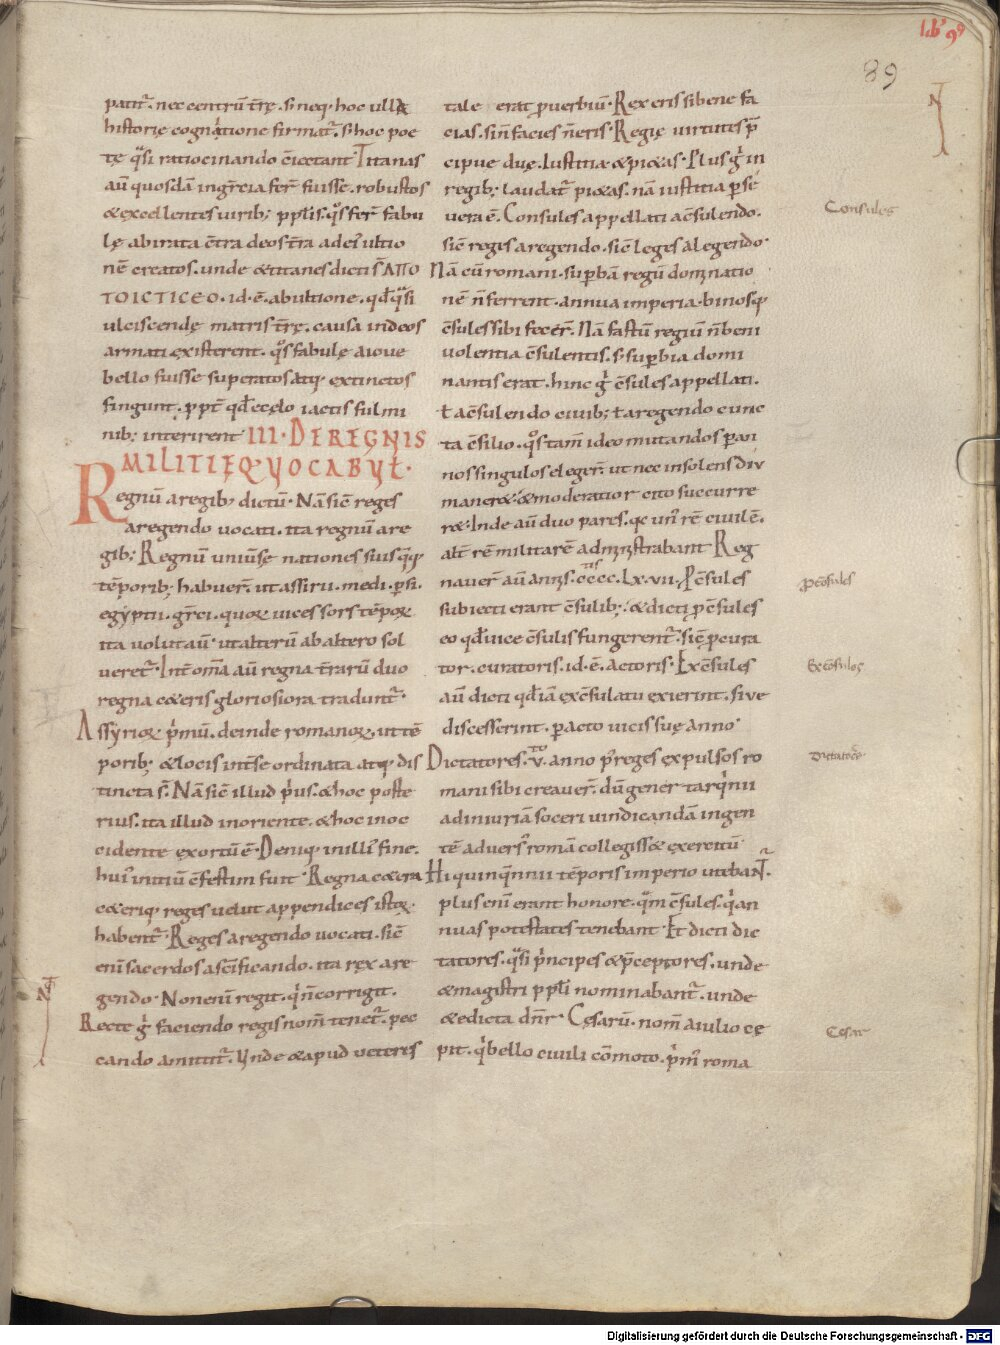 lib' 99
89
patit̄. nec centrū t̄rę. si neq; hoc ulla
historię cognitione firmat̄. s; hoc poe
tę q̄si ratiocinando c̄iectant. Titanas
aū quosdā in gr̄ecia fer̄ fuisse. robustos
& excellentes uirib; pp̄lis. q̊s fer̄ fabu
lę ab irata c̄tra deos t̄ra ad ei' ultio
nē creatos. unde & titanes dicti s̄ ΑΠΟ
ΤΟΙCΤΙCΕΟ. id. ē. ab ultione. qd̄ q̄si
ulciscendę matris t̄rę. causa in deos
armati existerent. q̊s fabulę a ioue
bello fuisse superatos atq; extinctos
fingunt. ppt̄ qd̄ e cęlo iactis fulmi
nib; interirent III. DE REGNIS
MILITIĘQ; VOCABVŁ.
Regnū a regib; dictū. Nā sic̄ reges
a regendo uocati. ita regnū a re
gib; Regnū uniūse nationes suis q̄q;
tēporib; habuer̄. ut assirii. medi. p̄si.
egyptii. gr̄eci. quoꝝ uices sors tēpoꝝ
ita uolutau̅. ut alterū ab altero sol
ueret̄. Int̄ om̄a aū regna t̄rarū duo
regna c&eris gloriosiora traduntr̄.
Assyrioꝝ p̍mū. deinde romanoꝝ. ut tē
porib; & locis int̄ se ordinata atq; dis
tincta s̄. Nā sic̄ illud p̍us. & hoc poste
rius. ita illud in oriente. & hoc in oc
cidente exortū ē. Deniq; in illi' fine.
hui' initiū c̄festim fuit. Regna c&era
c&eriq; reges uelut appendices istoꝝ
habentr̄. Reges a regendo uocati. sic̄
eni sacerdos a scīficando. ita rex a re
gendo. Non enī regit. q̍ n̄ corrigit.
Recte g̍ faciendo regis nom̄ tenetr̄. pec
cando amittitr̄. Vnde & apud ueteres
tale erat puerbiū. Rex eris si bene fa
cias. si n̄ facies n̄ eris. Regię uirtutes p̄
cipue duę. Iustitia & pi&as. Plus g̍ in
regib; laudat̄ pi&as. nā iustitia p se
uera ē. Consules appellati a c̄sulendo.
sic̄ reges a regendo. sic̄ leges a legendo.
Nā cū romani. supbā regū dominatio
nē n̄ ferrent. annua imperia. binosq;
c̄sules sibi fecer̄. Nā fastū regiū n̄ beni
uolentia c̄sulentis. s; supbia domi
nantis erat. hinc g̍ c̄sules appellati.
ł a c̄sulendo ciuib; ł a regendo cunc
ta c̄silio. q̊s tam̄ ideo mutandos p an
nos singulos eleger̄. ut nec insolens diu
maner&. & moderatior cito succurre
r&. Inde aū duo pares. qc un' rē ciuilē.
alt̄ rē militarē administrabant. Reg
nauer̄ aū annis. cccc. lx. vii. Pc̄sules
subiecti erant c̄sulib; & dicti pc̄sules
eo qd̄ uice c̄sulis fungerentr̄. sic̄ pcura
tor. curatoris. id. ē. actoris. Exc̄sules
aū dicti qd̄ iā exc̄sulatu exierint. siue
discesserint. pacto uicis suę anno.
Dictatores. v. anno p' reges expulsos ro
mani sibi creauer̄. dū gener tarq̍nii
ad iniuriā soceri uindicandā ingen
tē aduers' romā collegiss& exercitū.
Hi quinq̍nnii tēporis imperio utebantr̄.
plus enī erant honore. q̄m c̄sules. q̍ an
nuas potestates tenebant. Et dicti dic
tatores. q̄si p̍ncipes & p̄ceptores. unde
& magistri pp̄li nominabantr̄. unde
& edicta dn̄r̄. Cęsarū. nom̄ a iulio cę
pit. q̍ bello ciuili cōmoto. p̍m' roma
Consules
Pc̄sules
Exc̄sules
Dictatores
Cesar
Digitalisierung gefördert durch die Deutsche Forschungsgemeinschaft - DFG